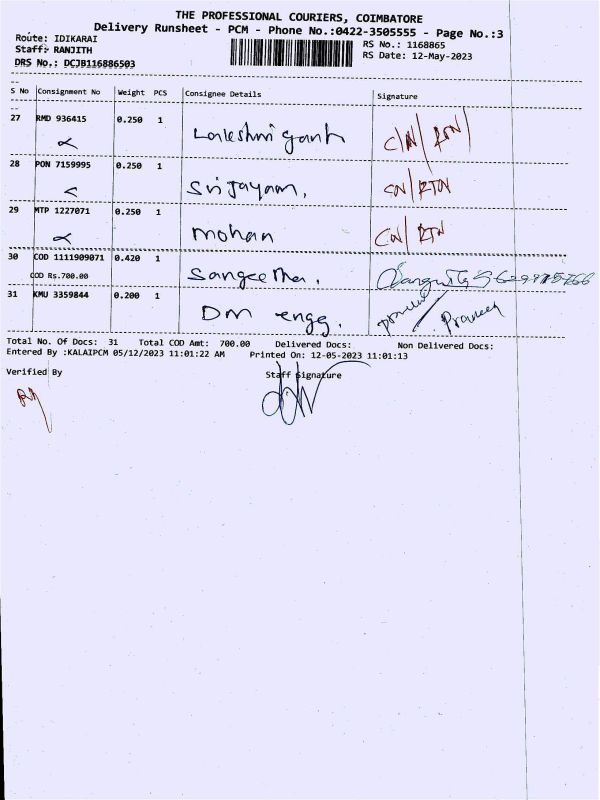 THE PROFESSIONAL COURIERS, COIMBATORE
Delivery Runsheet - PCM - Phone No.:0422-3505555 - Page No.:3
Route: IDIKARAI
RS No.: 1168865
Staff: RANJITH
RS Date: 12-May-2023
DRS No.: DCJB116886503
S No Consignment No Weight PCS Consignee Details Signature
27 RMD 936415 0.250 1 C/N/RTN/
28 PON 7159995 0.250 1 Sri Jayam, CN/RTN
29 MTP 1227071 0.250 1 Mohan CN/RTN
30 COD 1111909071 0.420 1 Sangeetha,
COD Rs.700.00
31 KMU 3359844 0.200 1 DM engg.
Total No. Of Docs: 31 Total COD Amt: 700.00 Delivered Docs: Non Delivered Docs:
Entered By :KALAIPCM 05/12/2023 11:01:22 AM Printed On: 12-05-2023 11:01:13
Verified By Staff Signature